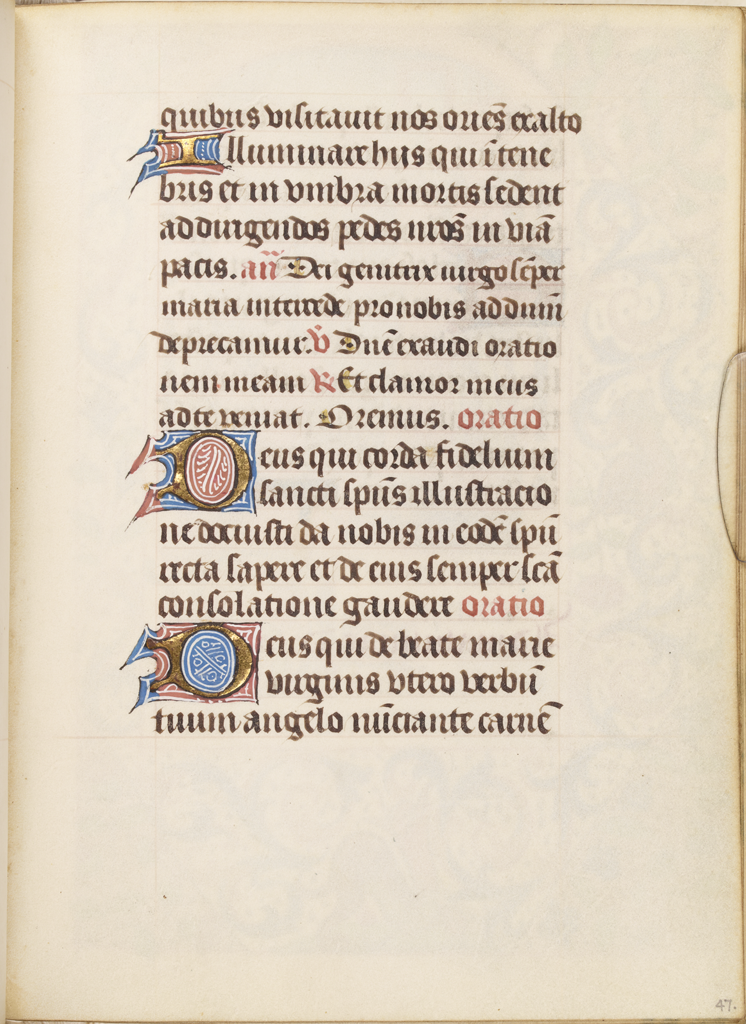 quibus visitauit nos oriēs exalto
Illuminare hijs qui ī tene
bris et in vmbra mortis sedent
ad dirigendos pedes nros̄ in viā
pacis. añ Dei genitrix uirgo sēper
maria intercede pro nobis ad dnm̄
deprecamur. v̄ Dn̄e exaudi oratio
nem meam R Et clamor meus
ad te veniat. Oremus. oratio
Deus qui corda fidelium
sancti spūs illustracio
ne docuisti da nobis in eodē spū
recta sapere et de eius semper scā
consolatione gaudere oratio
Deus qui de beate marie
virginis vtero verbū
tuum angelo nūciante carnē
47.